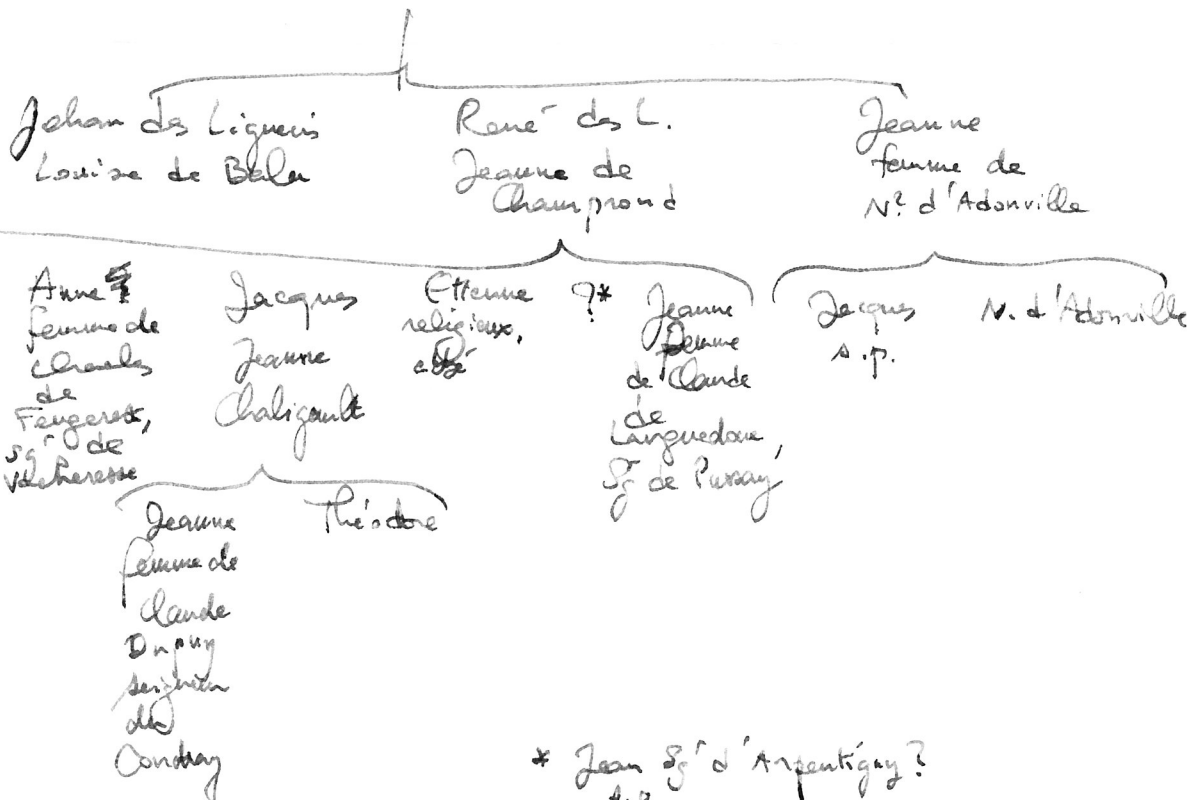 Jehan des Ligneris
Louise de Balu
René des L.
Jeanne de
Champrond
Jeanne
femme de
N? d'Adonville
Anne
femme de
Charles
de
Feugerets,
sgr de
Vacheresse
Jacques
Jeanne
Chaligault
Etienne
religieux,
abbé
?*
Jeanne
femme
de Claude
de
Languedoue,
Sg de Pussay
Jacques
s.p.
N. d'Adonville
Jeanne
femme de
Claude
Dupuy
seigneur
du
Coudray
Théodore
* Jean Sgr d'Arpentigny?
s.p.